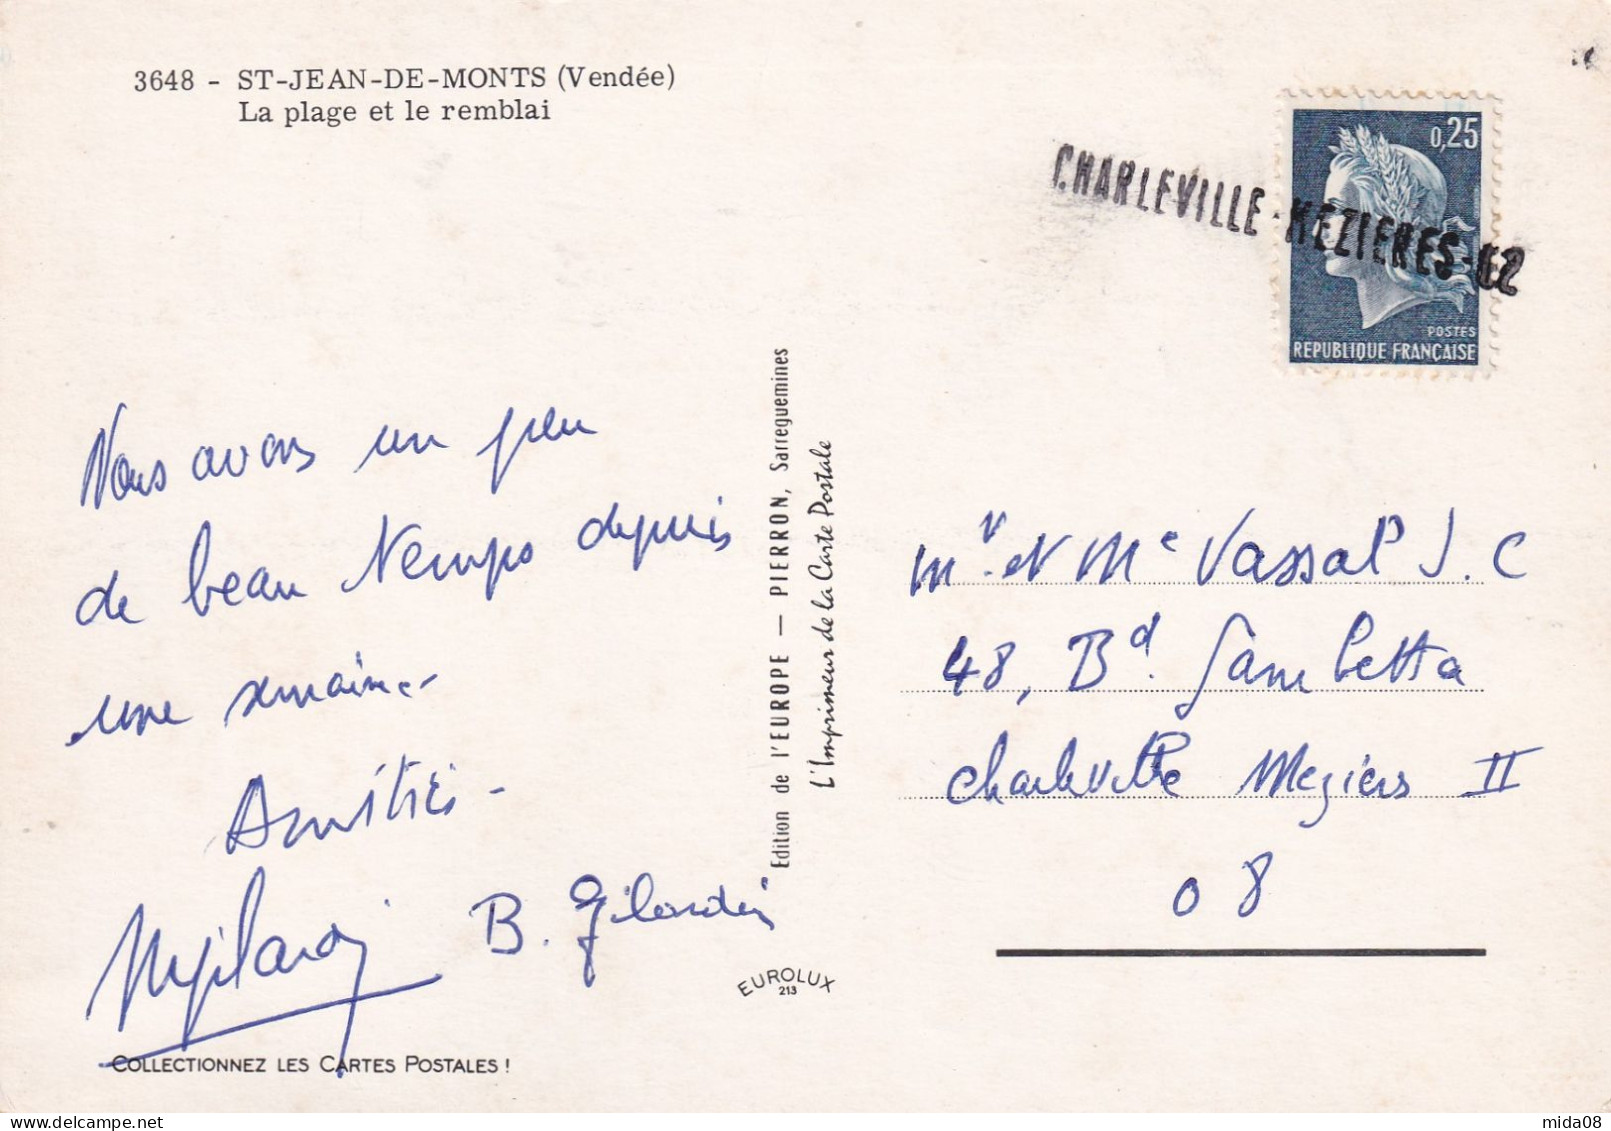 3648 - ST-JEAN-DE-MONTS (Vendée)
La plage et le remblai
CHARLEVILLE-MEZIERES-02
0,25
POSTES
REPUBLIQUE FRANÇAISE
Nous avons un peu
de beau temps depuis
une semaine.
Amitiés -
B. Gilardin
COLLECTIONNEZ LES CARTES POSTALES !
Edition de l'EUROPE — PIERRON, Sarreguemines
L'Imprimeur de la Carte Postale
EUROLUX
213
Mr et Me Vassal J. C
48, Bd. Gambetta
Charleville Meziers II
08
mida08